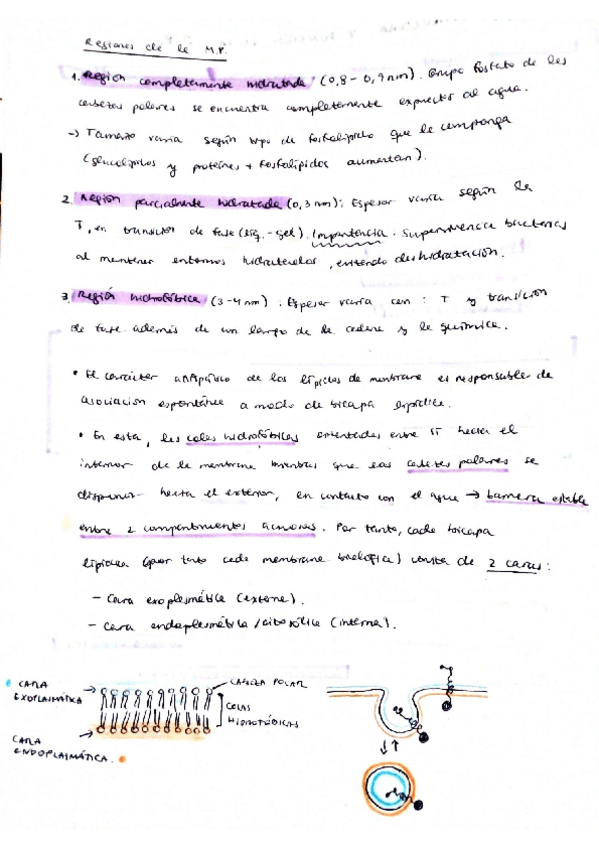 Regiones de la M.P.
1. Región completamente hidratada (0,8 - 0,9 nm). Grupo fosfato de las
cabezas polares se encuentra completamente expuesto al agua.
→ Tamaño varía según tipo de fosfolípido que la componga
(glucolípidos y proteínas + fosfolípidos aumentan).
2. Región parcialmente hidratada (0,3 nm): Espesor varía según la
T, en transición de fase (líq. - gel). Importancia: supervivencia bacterias
al mantener entornos hidratados, evitando deshidratación.
3. Región hidrofóbica (3-4 nm): Espesor varía con: T y transición
de fase además de un largo de la cadena y la química.
• El carácter anfipático de los lípidos de membrana es responsable de
asociación espontánea a modo de bicapa lipídica.
• En esta, las colas hidrofóbicas orientadas entre sí hacia el
interior de la membrana mientras que las cabezas polares se
disponen hacia el exterior, en contacto con el agua → barrera estable
entre 2 compartimentos acuosos. Por tanto, cada bicapa
lipídica (por tanto cada membrana biológica) consta de 2 caras:
- Cara exoplasmática (externa).
- Cara endoplasmática / citosólica (interna).
CARA EXOPLASMÁTICA
CABEZA POLAR
COLAS HIDROFÓBICAS
CARA ENDOPLASMÁTICA.